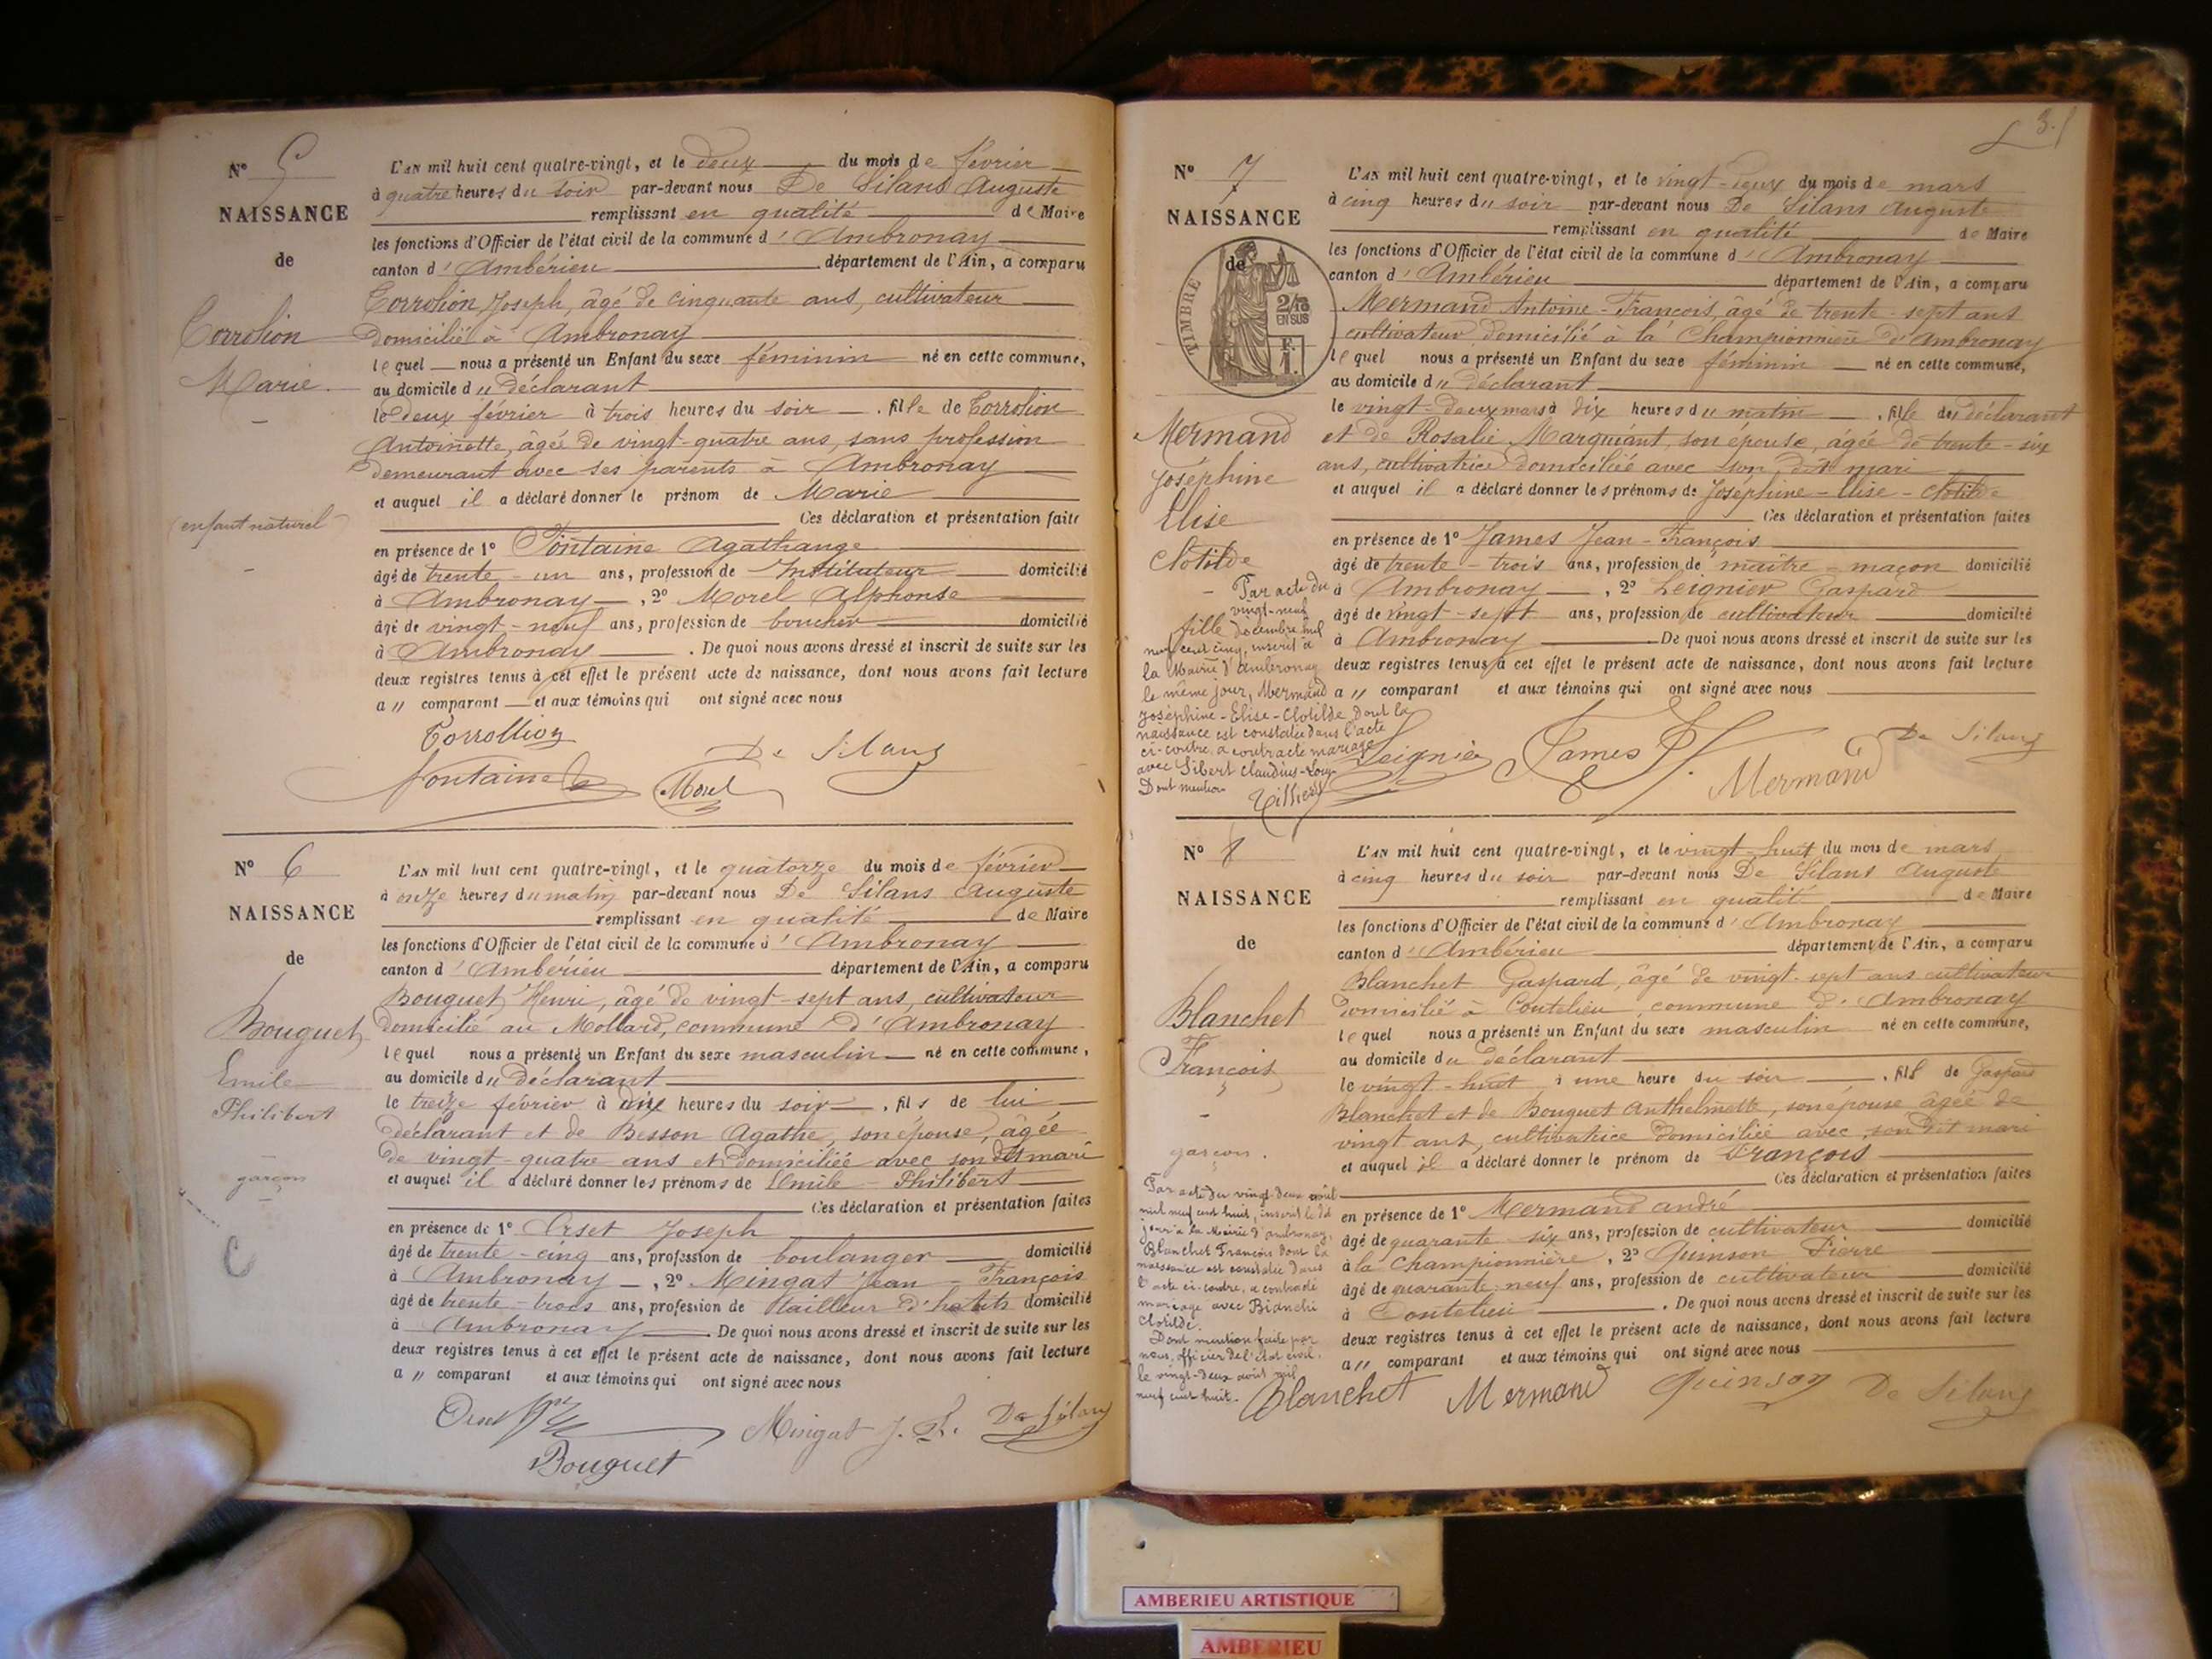 N° 5
NAISSANCE
de
Corrolion
Marie
(enfant naturel)
L'AN mil huit cent quatre-vingt, et le deux du mois de février
à quatre heures du soir par-devant nous De Silans Auguste
remplissant en qualité de Maire
les fonctions d'Officier de l'état civil de la commune d'Ambronay
canton d'Ambérieu département de l'Ain, a comparu
Corrolion Joseph, âgé de cinquante ans, cultivateur
domicilié à Ambronay
lequel nous a présenté un Enfant du sexe féminin né en cette commune,
au domicile du déclarant
le deux février à trois heures du soir, fille de Corrolion
Antoinette, âgée de vingt-quatre ans, sans profession
demeurant avec ses parents à Ambronay
et auquel il a déclaré donner le prénom de Marie
Ces déclaration et présentation faites
en présence de 1° Fontaine Agathange
âgé de trente-un ans, profession de Instituteur domicilié
à Ambronay, 2° Morel Alphonse
âgé de vingt-neuf ans, profession de boucher domicilié
à Ambronay. De quoi nous avons dressé et inscrit de suite sur les
deux registres tenus à cet effet le présent acte de naissance, dont nous avons fait lecture
au comparant et aux témoins qui ont signé avec nous
Corrollion
De Silans
Fontaine Morel
N° 6
NAISSANCE
de
Bouguet
Emile
Philibert
garçon
L'AN mil huit cent quatre-vingt, et le quatorze du mois de février
à onze heures du matin par-devant nous De Silans Auguste
remplissant en qualité de Maire
les fonctions d'Officier de l'état civil de la commune d'Ambronay
canton d'Ambérieu département de l'Ain, a comparu
Bouguet Henri, âgé de vingt-sept ans, cultivateur
domicilié au Mollard, commune d'Ambronay
lequel nous a présenté un Enfant du sexe masculin né en cette commune,
au domicile du déclarant
le treize février à dix heures du soir, fils de lui
déclarant et de Besson Agathe, son épouse, âgée
de vingt-quatre ans et domiciliée avec son dit mari
et auquel il a déclaré donner les prénoms de Emile-Philibert
Ces déclaration et présentation faites
en présence de 1° Orset Joseph
âgé de trente-cinq ans, profession de boulanger domicilié
à Ambronay, 2° Mingat Jean-François
âgé de trente-trois ans, profession de tailleur d'habits domicilié
à Ambronay. De quoi nous avons dressé et inscrit de suite sur les
deux registres tenus à cet effet le présent acte de naissance, dont nous avons fait lecture
au comparant et aux témoins qui ont signé avec nous
Orset Mingat J. F. De Silans
Bouguet
3
N° 7
NAISSANCE
de
TIMBRE
2/10
EN SUS
F.
1.
Mermand
Joséphine
Elise
Clotilde
fille
Par acte du
vingt-neuf
décembre mil
neuf cent cinq, inscrit à
la Mairie d'Ambronay
le même jour, Mermand
Joséphine-Elise-Clotilde dont la
naissance est constatée dans l'acte
ci-contre, a contracté mariage
avec Sibert Claudius-Louis
Dont mention
L'AN mil huit cent quatre-vingt, et le vingt-deux du mois de mars
à cinq heures du soir par-devant nous De Silans Auguste
remplissant en qualité de Maire
les fonctions d'Officier de l'état civil de la commune d'Ambronay
canton d'Ambérieu département de l'Ain, a comparu
Mermand Antoine-François, âgé de trente-sept ans
cultivateur, domicilié à la Championnière d'Ambronay
lequel nous a présenté un Enfant du sexe féminin né en cette commune,
au domicile du déclarant
le vingt-deux mars à dix heures du matin, fille du déclarant
et de Rosalie Marguiant, son épouse, âgée de trente-six
ans, cultivatrice domiciliée avec son dit mari
et auquel il a déclaré donner les prénoms de Joséphine-Elise-Clotilde
Ces déclaration et présentation faites
en présence de 1° James Jean-François
âgé de trente-trois ans, profession de maître-maçon domicilié
à Ambronay, 2° Leignier Gaspard
âgé de vingt-sept ans, profession de cultivateur domicilié
à Ambronay. De quoi nous avons dressé et inscrit de suite sur les
deux registres tenus à cet effet le présent acte de naissance, dont nous avons fait lecture
au comparant et aux témoins qui ont signé avec nous
Leignier James De Silans
Mermand
N° 8
NAISSANCE
de
Blanchet
François
garçon.
Par acte du vingt-deux août
mil neuf cent huit, inscrit le dit
jour à la Mairie d'Ambronay,
Blanchet François dont la
naissance est constatée dans
l'acte ci-contre, a contracté
mariage avec Bianchi
Clotilde.
Dont mention faite par
nous, officier de l'état civil,
le vingt-deux août mil
neuf cent huit.
L'AN mil huit cent quatre-vingt, et le vingt-huit du mois de mars
à cinq heures du soir par-devant nous De Silans Auguste
remplissant en qualité de Maire
les fonctions d'Officier de l'état civil de la commune d'Ambronay
canton d'Ambérieu département de l'Ain, a comparu
Blanchet Gaspard, âgé de vingt-sept ans cultivateur
domicilié à Coutelieu, commune d'Ambronay
lequel nous a présenté un Enfant du sexe masculin né en cette commune,
au domicile du déclarant
le vingt-huit à une heure du soir, fils de Gaspard
Blanchet et de Bouguet Anthelmette, son épouse âgée de
vingt ans, cultivatrice domiciliée avec son dit mari
et auquel il a déclaré donner le prénom de François
Ces déclaration et présentation faites
en présence de 1° Mermand André
âgé de quarante-six ans, profession de cultivateur domicilié
à la Championnière, 2° Quinson Pierre
âgé de quarante-neuf ans, profession de cultivateur domicilié
à Coutelieu. De quoi nous avons dressé et inscrit de suite sur les
deux registres tenus à cet effet le présent acte de naissance, dont nous avons fait lecture
au comparant et aux témoins qui ont signé avec nous
Blanchet Mermand Quinson De Silans
AMBERIEU ARTISTIQUE
AMBERIEU